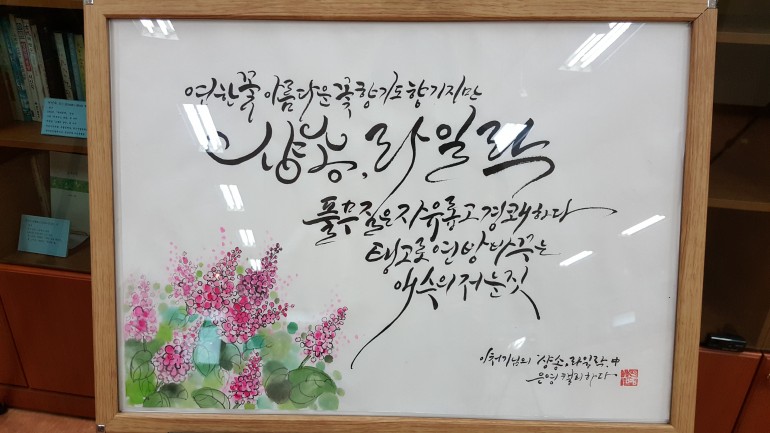 연한 꽃 아름다운 꽃 향기도 향기지만
샹송, 라일락
풀무질은 자유롭고 경쾌하다
탱고로 연방 바꾸는
애수의 저 눈짓
님의 '샹송, 라일락, 中
은영 캘리하다